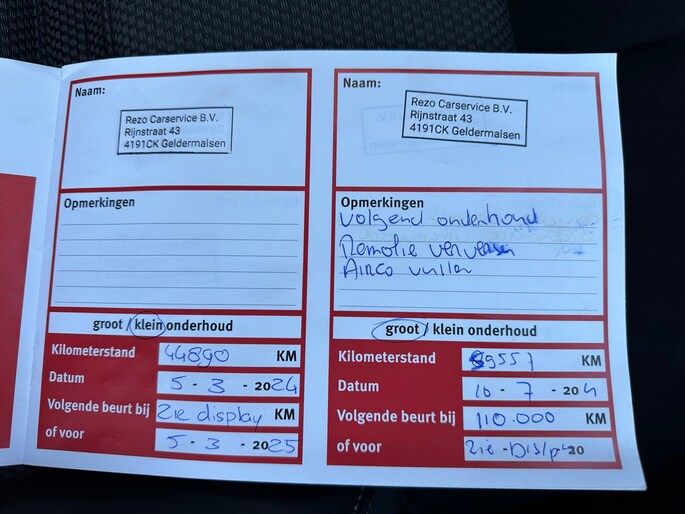 Naam:
Rezo Carservice B.V.
Rijnstraat 43
4191CK Geldermalsen
Opmerkingen
groot / klein onderhoud
Kilometerstand 44890 KM
Datum 5 - 3 - 2024
Volgende beurt bij Zie display KM
of voor 5 - 3 - 2025
Naam:
Rezo Carservice B.V.
Rijnstraat 43
4191CK Geldermalsen
Opmerkingen
volgend onderhoud
Remolie verversen
Airco vullen
groot / klein onderhoud
Kilometerstand 89557 KM
Datum 10 - 7 - 20
Volgende beurt bij 110.000 KM
of voor Zie - Display 20